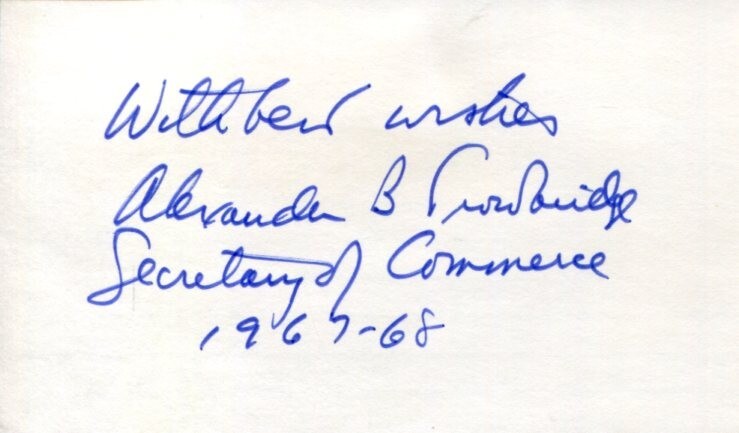 With best wishes
Alexander B Trowbridge
Secretary of Commerce
1967-68